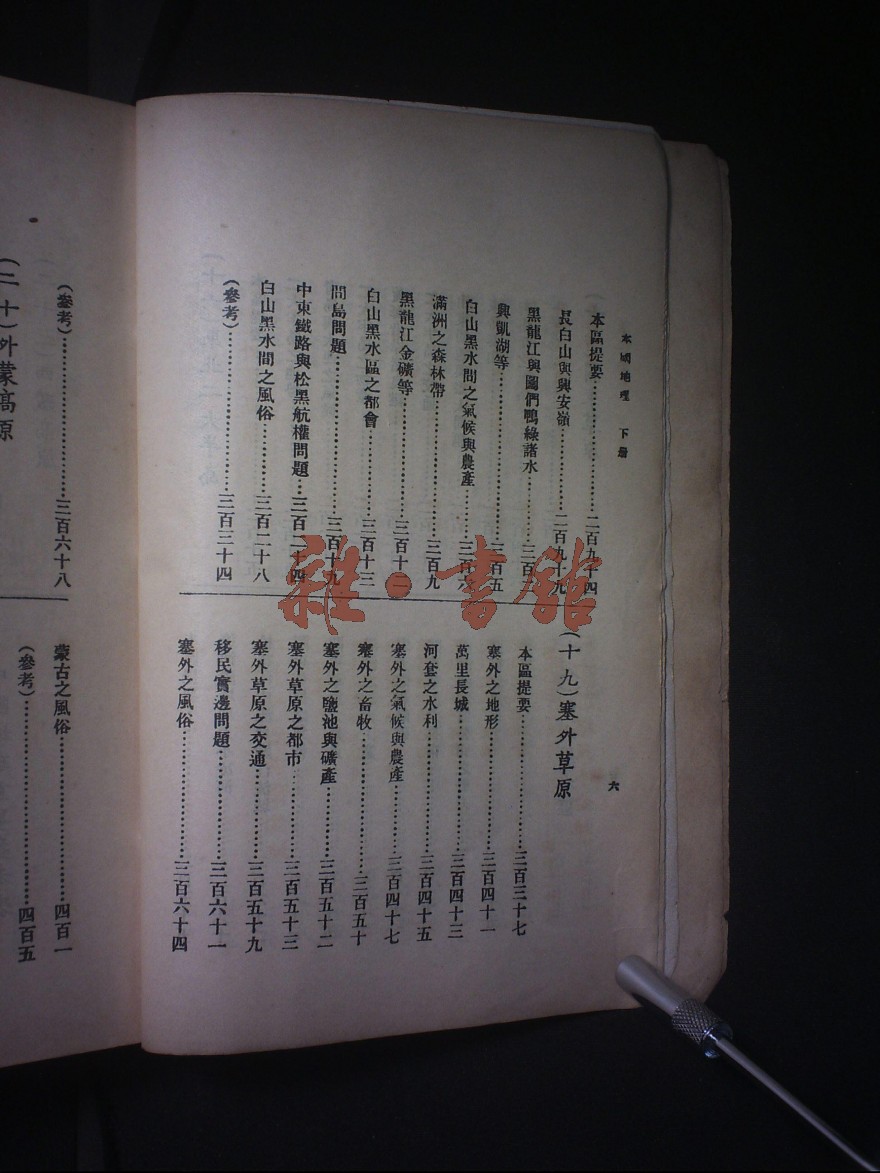 本國地理 下冊
六
本區提要………………二百九十四
長白山與興安嶺…………二百九十九
黑龍江與圖們鴨綠諸水………三百
興凱湖等………………三百五
白山黑水間之氣候與農產………三百六
滿洲之森林帶……………三百九
黑龍江金礦等……………三百十二
白山黑水區之都會…………三百十三
間島問題………………三百十九
中東鐵路與松黑航權問題…三百二十四
白山黑水間之風俗…………三百二十八
(參考)………………三百三十四
(十九)塞外草原
本區提要………………三百三十七
塞外之地形………………三百四十一
萬里長城………………三百四十三
河套之水利………………三百四十五
塞外之氣候與農產…………三百四十七
塞外之畜牧………………三百五十
塞外之鹽池與礦產…………三百五十二
塞外草原之都市……………三百五十三
塞外草原之交通……………三百五十九
移民實邊問題……………三百六十一
塞外之風俗………………三百六十四
(參考)………………三百六十八
(二十)外蒙高原
蒙古之風俗………………四百一
(參考)………………四百五
雜·書館